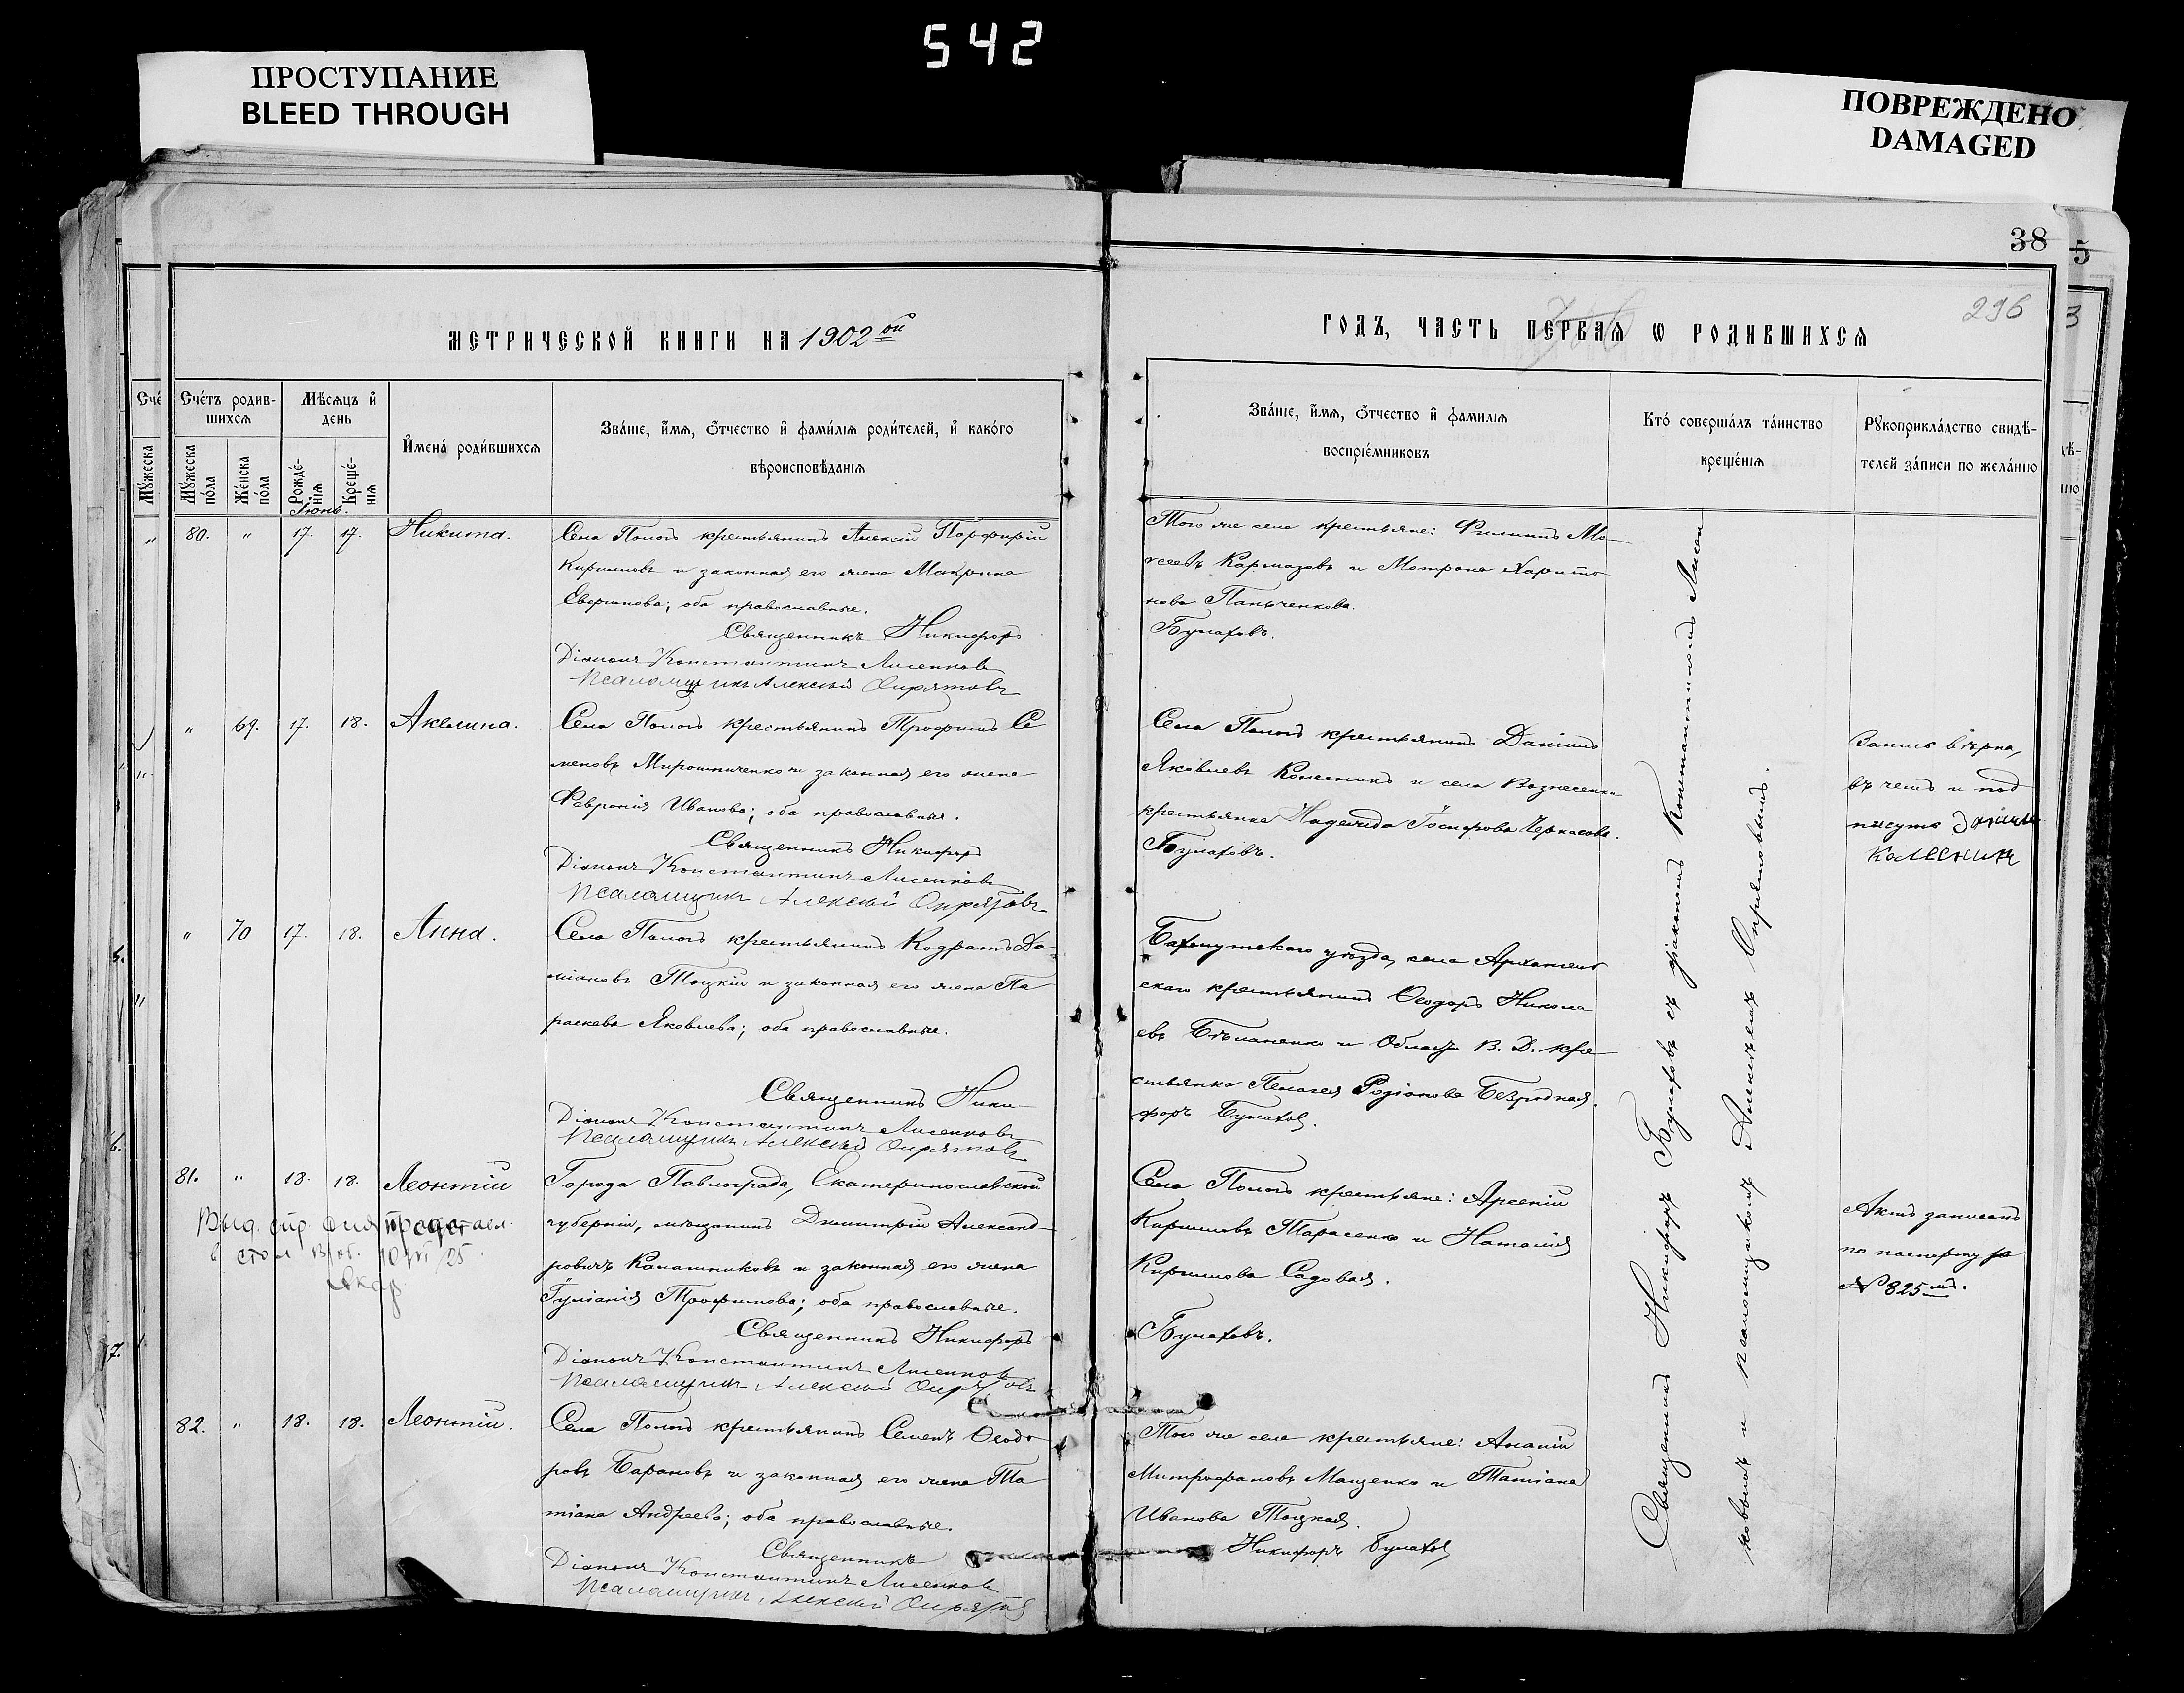 542
ПРОСТУПАНИЕ
BLEED THROUGH
ПОВРЕЖДЕНО
DAMAGED
38
5
296
МЕТРИЧЕСКОЙ КНИГИ НА 1902 ой
ГОДЪ, ЧАСТЬ ПЕРВАЯ Ѡ РОДИВШИХСЯ
Счéтъ родив-
шихся
Мѣсяцъ и҆
день
Мꙋ́жеска
пóла
Жéнска
пóла
Рождé-
нїя
Крещé-
нїя
И҆менá роди́вшихся
Звáнїе, и҆́мя, ѻ҆́тчество и҆ фами́лїя роди́телей, и҆ какóго
вѣроисповѣ́данїя
Звáнїе, и҆́мя, ѻ҆́тчество и҆ фамилїя
воспрїéмниковъ
Ктó совершáлъ тáинство
крещéнїя
Рꙋкоприклáдство свидѣ́-
телей зáписи по желáнїю
Іюнь.
80. " 17. 17. Никита.
Села Пологъ крестьянинъ Алексій Порфирій
Кирилловъ и законная его жена Макрина
оба православные.
Священникъ Никифоръ
Діаконъ Константинъ Лисенковъ
Псаломщикъ Алексѣй Опрятовъ
Того же села крестьяне: Филиппъ Мо-
исеевъ Кармазовъ и Мотрона Харито
нова Папченкова.
Булаховъ.
" 69. 17. 18. Акелина.
Села Пологъ крестьянинъ Трофимъ Се
меновъ Мирошниченко и законная его жена
Феврония Иванова; оба православные.
Священникъ Никифоръ
Діаконъ Константинъ Лисенковъ
Псаломщикъ Алексѣй Опрятовъ
Села Пологъ крестьянинъ Даніилъ
Яковлевъ Колесникъ и села Вознесенки
крестьянка Надежда Іосифова Черкасова.
Булаховъ.
Запись вѣрна,
въ чемъ и под
писуюсь Даніилъ
Колесникъ
" 70 17. 18. Анна.
Села Пологъ крестьянинъ Кодратъ Да-
міановъ Тоцкій и законная его жена Па
раскева Яковлева; оба православные.
Священникъ Ники-
Діаконъ Константинъ Лисенковъ
Псаломщикъ Алексѣй Опрятовъ
Бахмутскаго уѣзда, села Архангель
скаго крестьянинъ Ѳеодоръ Никола
евъ Бѣланенко и Области В. Д. кре
стьянка Пелагея Родіонова Безродная.
форъ Булаховъ.
81. " 18. 18. Леонтій
Города Павлограда, Екатеринославской
губерніи, мѣщанинъ Димитрій Александ-
ровичъ Калашниковъ и законная его жена
Іуліанія Трофимова; оба православные.
Священникъ Никифоръ
Діаконъ Константинъ Лисенковъ
Псаломщикъ Алексѣй Опрятовъ
Выд. спр. для представл.
в стол
Села Пологъ крестьяне: Арсеній
Кирилловъ Тарасенко и Наталія
Кириллова Садовая.
Булаховъ.
Актъ записанъ
по паспорту за
№ 825 мъ.
82. " 18. 18. Леонтій.
Села Пологъ крестьянинъ Семенъ Ѳеодо
ровъ Барановъ и законная его жена Та
тіана Андреева; оба православные.
Священникъ
Діаконъ Константинъ Лисенковъ
Псаломщикъ Алексѣй Опрятовъ
Того же села крестьяне: Ананій
Митрофановъ Мащенко и Татіана
Иванова Тоцкая.
Никифоръ Булаховъ
Священникъ Никифоръ Булаховъ съ діакономъ Константиномъ Лисен
ковымъ и псаломщикомъ Алексѣемъ Опрятовымъ.